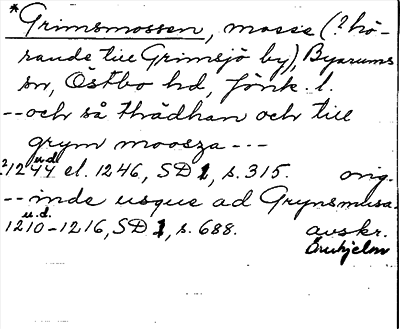 *Grimsmossen, mosse (? hö-
rande till Grimsjö by), Byarums
sn, Östbo hd, Jönk. l.
-- och så thrädhan och till
grym moosza ---
?1244 u.d. el. 1246, SD 1, s. 315. orig.
-- inde usque ad Grymsmusa.
u.d.
1210-1216, SD 1, s. 688. avskr.
Örnhjelm